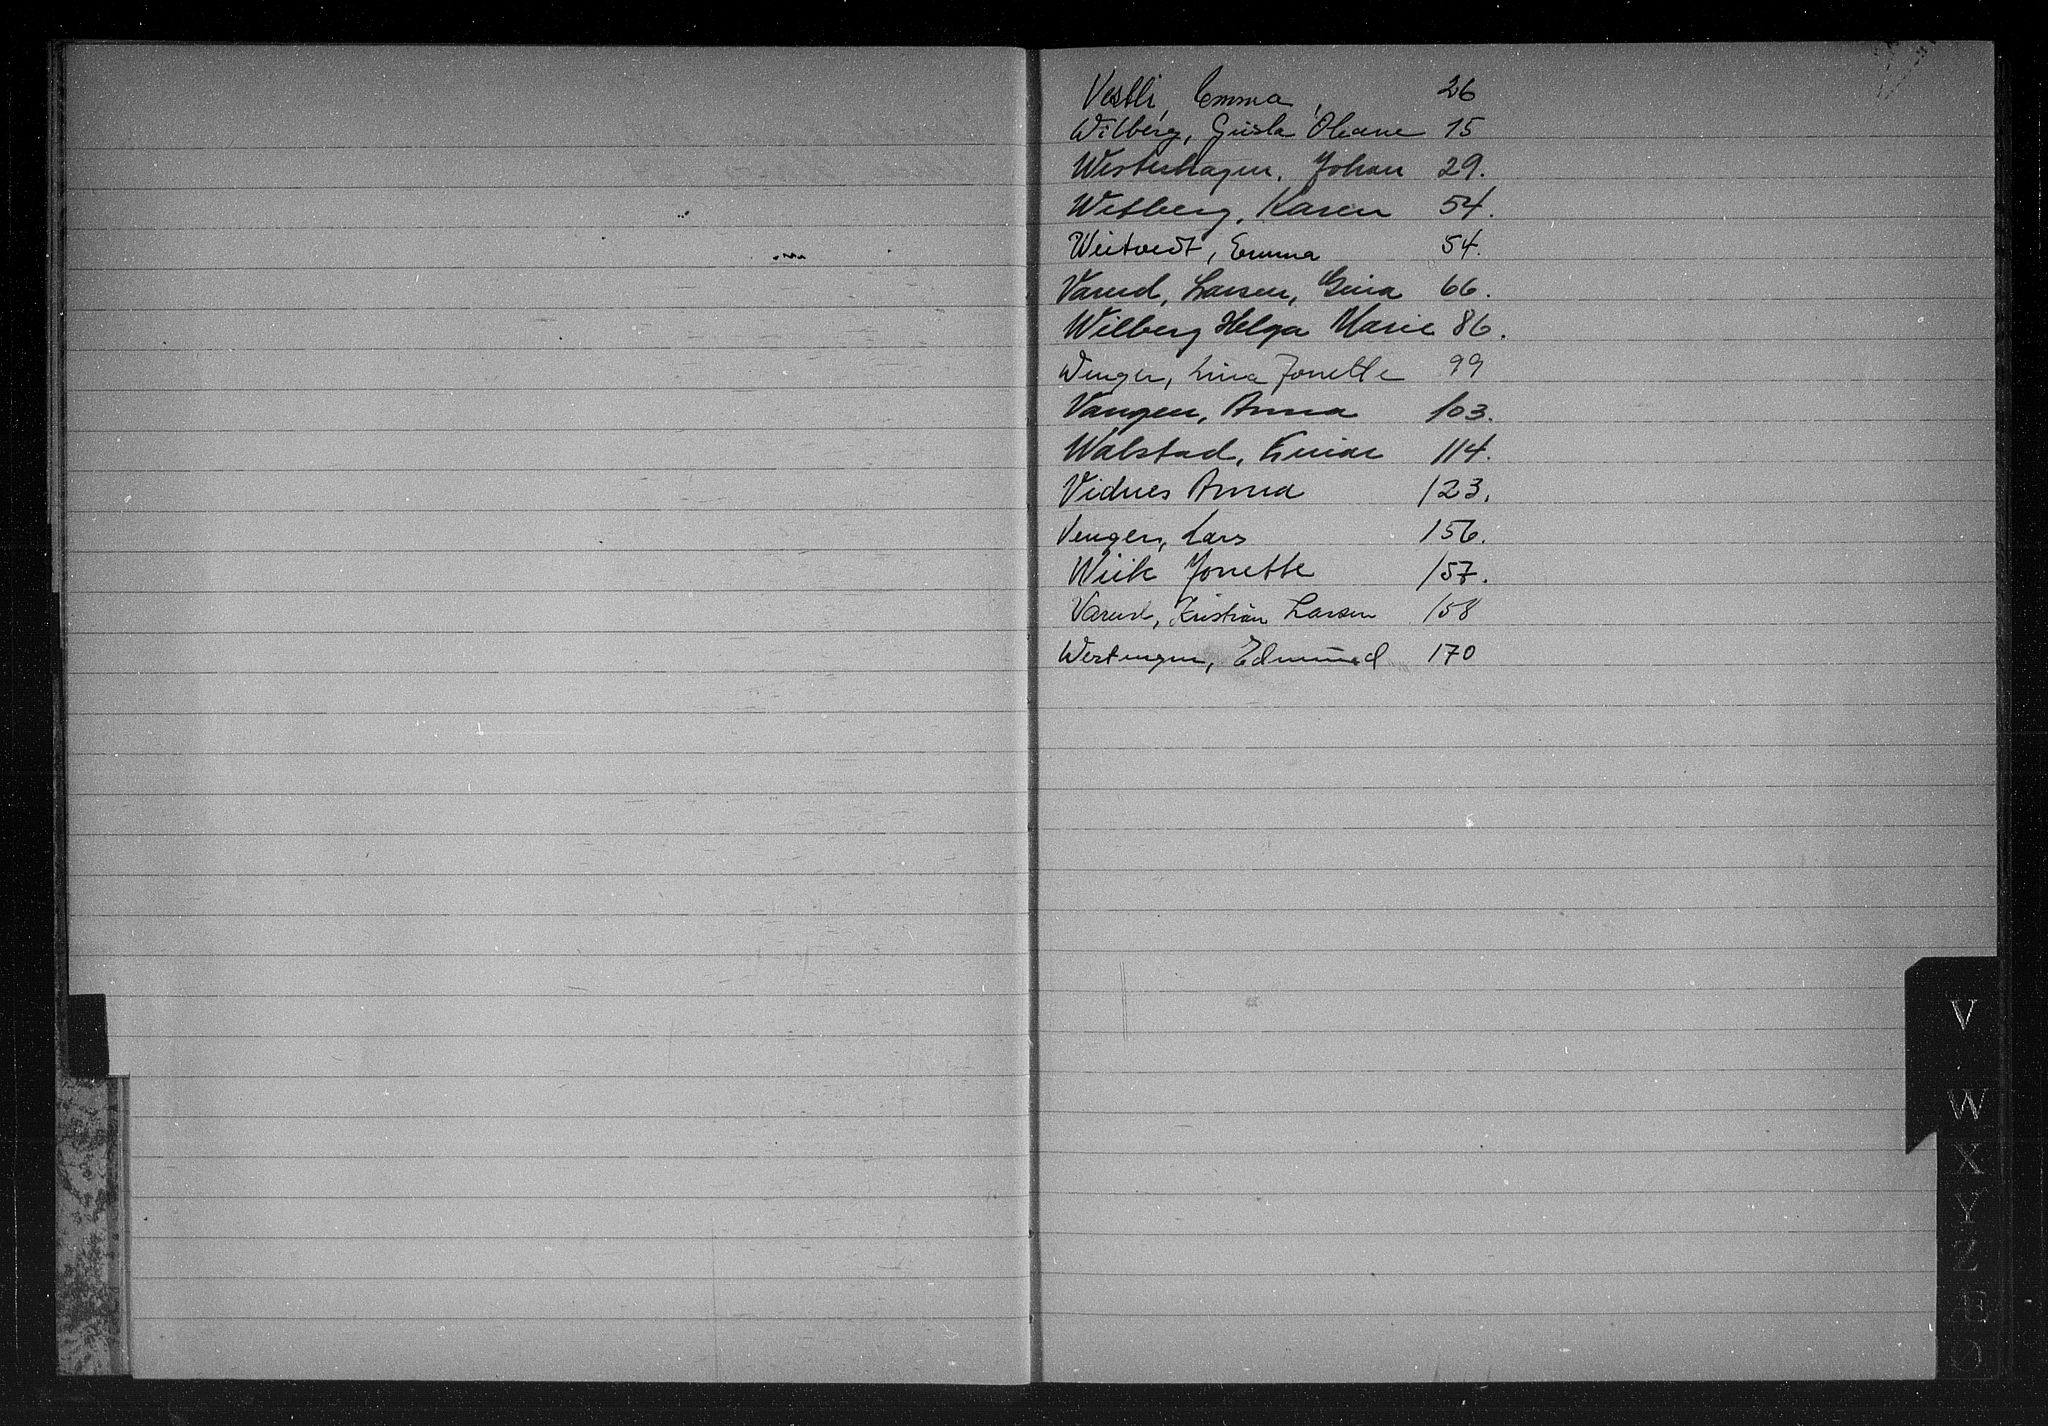 Vestli, Emma 26
Wilberg, Gusta Oleane 15
Westerhagen, Johan 29.
Wetberg, Karen 54.
Weitvedt, Emma 54.
Varud, Larsen, Gina 66.
Wilberg Helga Marie 86.
Wenger, Lina Jonette 99
Vangen, Anna 103.
Walstad, Einar 114.
Vidnes Anna 123.
Venger, Lars 156.
Wiik Jonette 157.
Varud, Kristian Larsen 158
Wertengen, Edmund 170
V
W
X
Y
Z
Æ
Ø